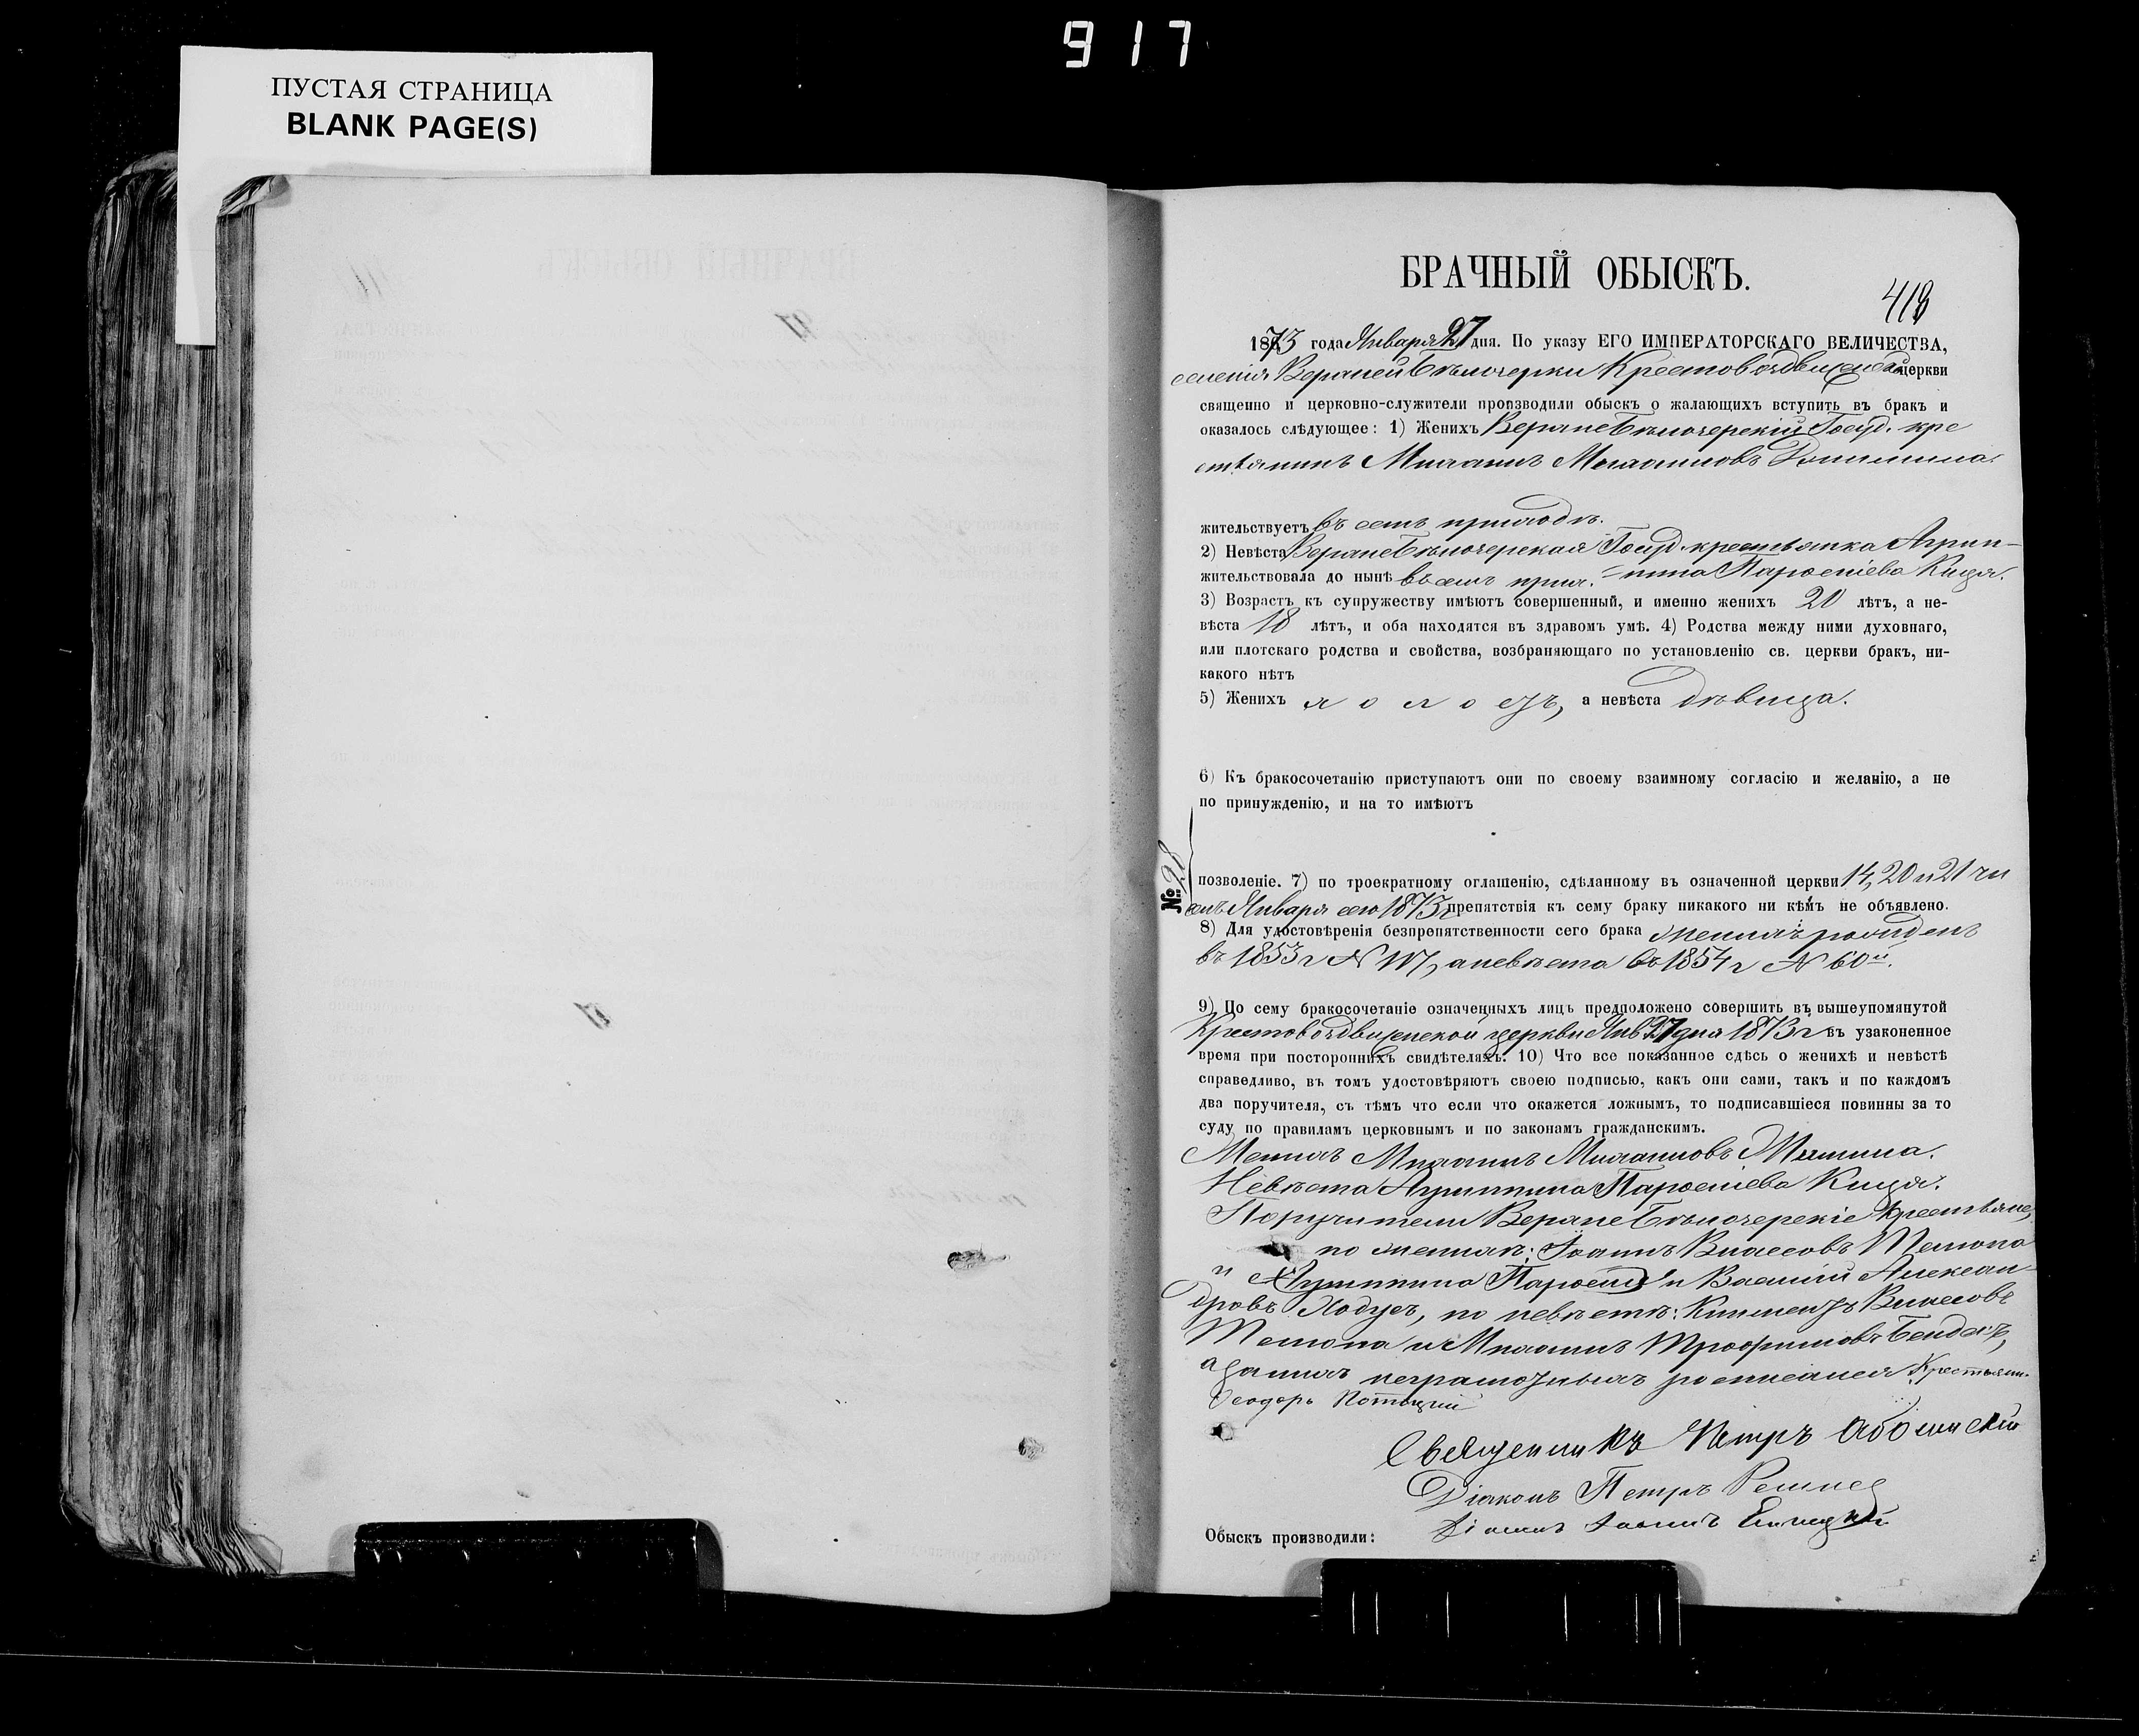 917
ПУСТАЯ СТРАНИЦА
BLANK PAGE(S)
БРАЧНЫЙ ОБЫСКЪ.
418
1873 года Января 27 дня. По указу ЕГО ИМПЕРАТОРСКАГО ВЕЛИЧЕСТВА,
селенія Верхней Бѣлозерки Крестовоздвиженской церкви
священно и церковно-служители производили обыскъ о жалающихъ вступить въ бракъ и
оказалось слѣдующее: 1) Женихъ Верхнебѣлозерскій Госуд. кре
стьянинъ Михаилъ Михаиловъ
жительствуетъ въ семъ приходѣ.
2) Невѣста Верхнебѣлозерская Госуд. крестьянка Агрип-
жительствовала до нынѣ въ семъ прих. -пина Пароеніева Кица.
3) Возрастъ къ супружеству имѣютъ совершенный, и именно женихъ 20 лѣтъ, а не-
вѣста 18 лѣтъ, и оба находятся въ здравомъ умѣ. 4) Родства между ними духовнаго,
или плотскаго родства и свойства, возбраняющаго по установленію св. церкви бракъ, ни-
какого нѣтъ
5) Женихъ холостъ, а невѣста дѣвица.
6) Къ бракосочетанію приступаютъ они по своему взаимному согласію и желанію, а не
по принужденію, и на то имѣютъ
№ 28
позволеніе. 7) по троекратному оглашенію, сдѣланному въ означенной церкви 14, 20 и 21 чи
слъ Января сего 1873 г препятствія къ сему браку никакого ни кѣмъ не объявлено.
8) Для удостовѣренія безпрепятственности сего брака женихъ рожденъ
въ 1853 г № 117, а невѣста въ 1854 г № 60й.
9) По сему бракосочетаніе означенныхъ лицъ предположено совершить въ вышеупомянутой
Крестовоздвиженской церкви Янв 27 дня 1873 г въ узаконенное
время при постороннихъ свидѣтеляхъ. 10) Что все показанное сдѣсь о женихѣ и невѣстѣ
справедливо, въ томъ удостовѣряютъ своею подписью, какъ они сами, такъ и по каждомъ
два поручителя, съ тѣмъ что если что окажется ложнымъ, то подписавшіеся повинны за то
суду по правиламъ церковнымъ и по законамъ гражданскимъ.
Женихъ Михаилъ Михаиловъ
Невѣста Агриппина Пароеніева Кица.
Поручители Верхнебѣлозерскіе Крестьяне,
по женихѣ: Іоаннъ Власовъ
и Агриппина и Василій Алексан-
дровъ Лобусъ, по невѣстѣ: Климентъ Власовъ
и Михаилъ Трофимовъ
а за нихъ неграмотныхъ росписался Крестьянин.
Ѳеодоръ
Священникъ Петръ
Діаконъ Петръ
Іоаннъ
Обыскъ производили: